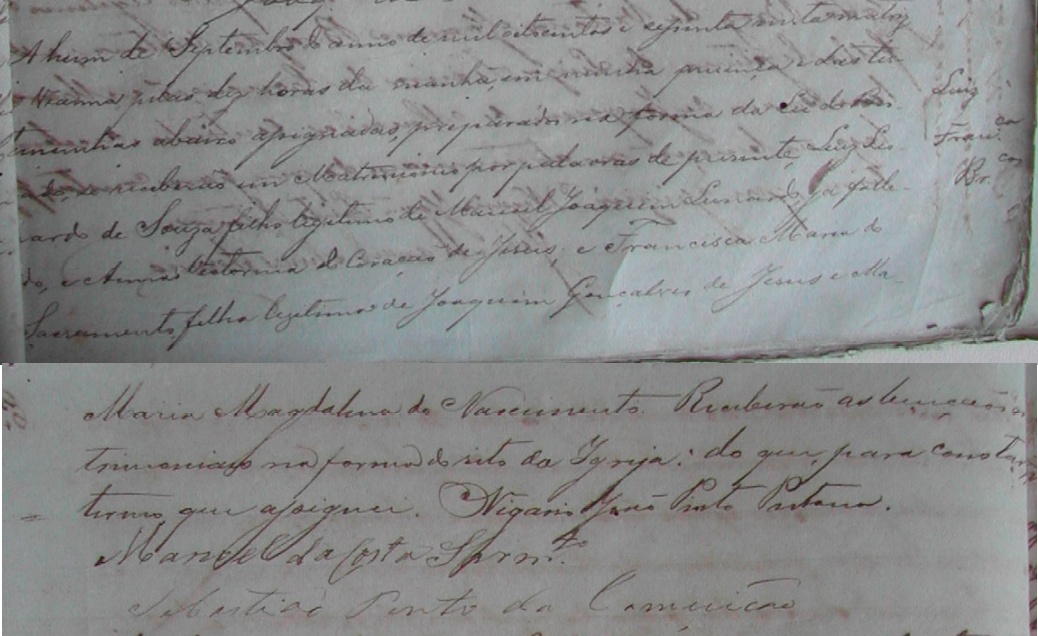 A hum de Septembro do anno de mil oitocentos e sessenta nesta matriz
Vianna pelas dez horas da manhã, em minha presença e das tes
temunhas abaixo assignadas, preparados na forma da Lei do Con
do, se receberão em Matrimonio por palavras de presente Luiz Leo
nardo de Souza filho legitimo de Manoel Joaquim Leonardo, ja falle
do, e Anna Victorina do Coração de Jesus, e Francisca Maria do
Sacramento, filha legitima de Joaquim Gonçalves de Jesus e Ma
Luiz
Fran.ca
Br.cos
Maria Magdalena do Nascimento. Receberão as bençãos
trimoniaes na forma do rito da Igreja: do que, para constar
termo, que assignei. Vigario João Pinto Pestana.
Manoel da Costa Sarm.to
Sebastião Pinto da Conceição